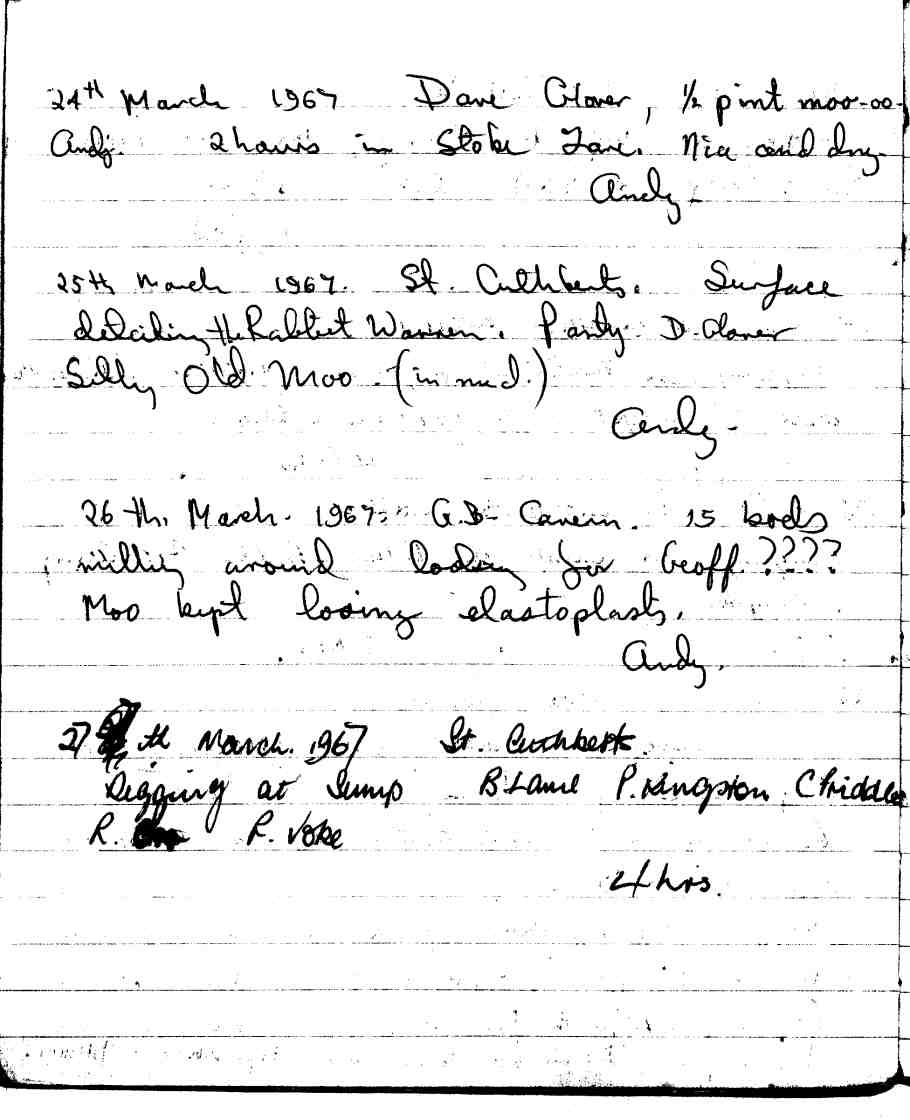 24th March 1967 Dave Glover, ½ pint moo-oo-
Andy. 2 hours in Stoke Lane. Nice and dry.
Andy-
25th March 1967. St. Cuthberts. Surface
detailing the Rabbit Warren. Party D. Glover
Silly Old Moo. (in mud.)
Andy-
26th, March. 1967. G.B- Cavern. 15 bods
milling around looking for Geoff ????
Moo kept loosing elastoplasts.
Andy.
27 th March. 1967 St. Cuthberts.
Digging at Sump P. Kingston C Priddle
R. R. Voke
4 hrs.